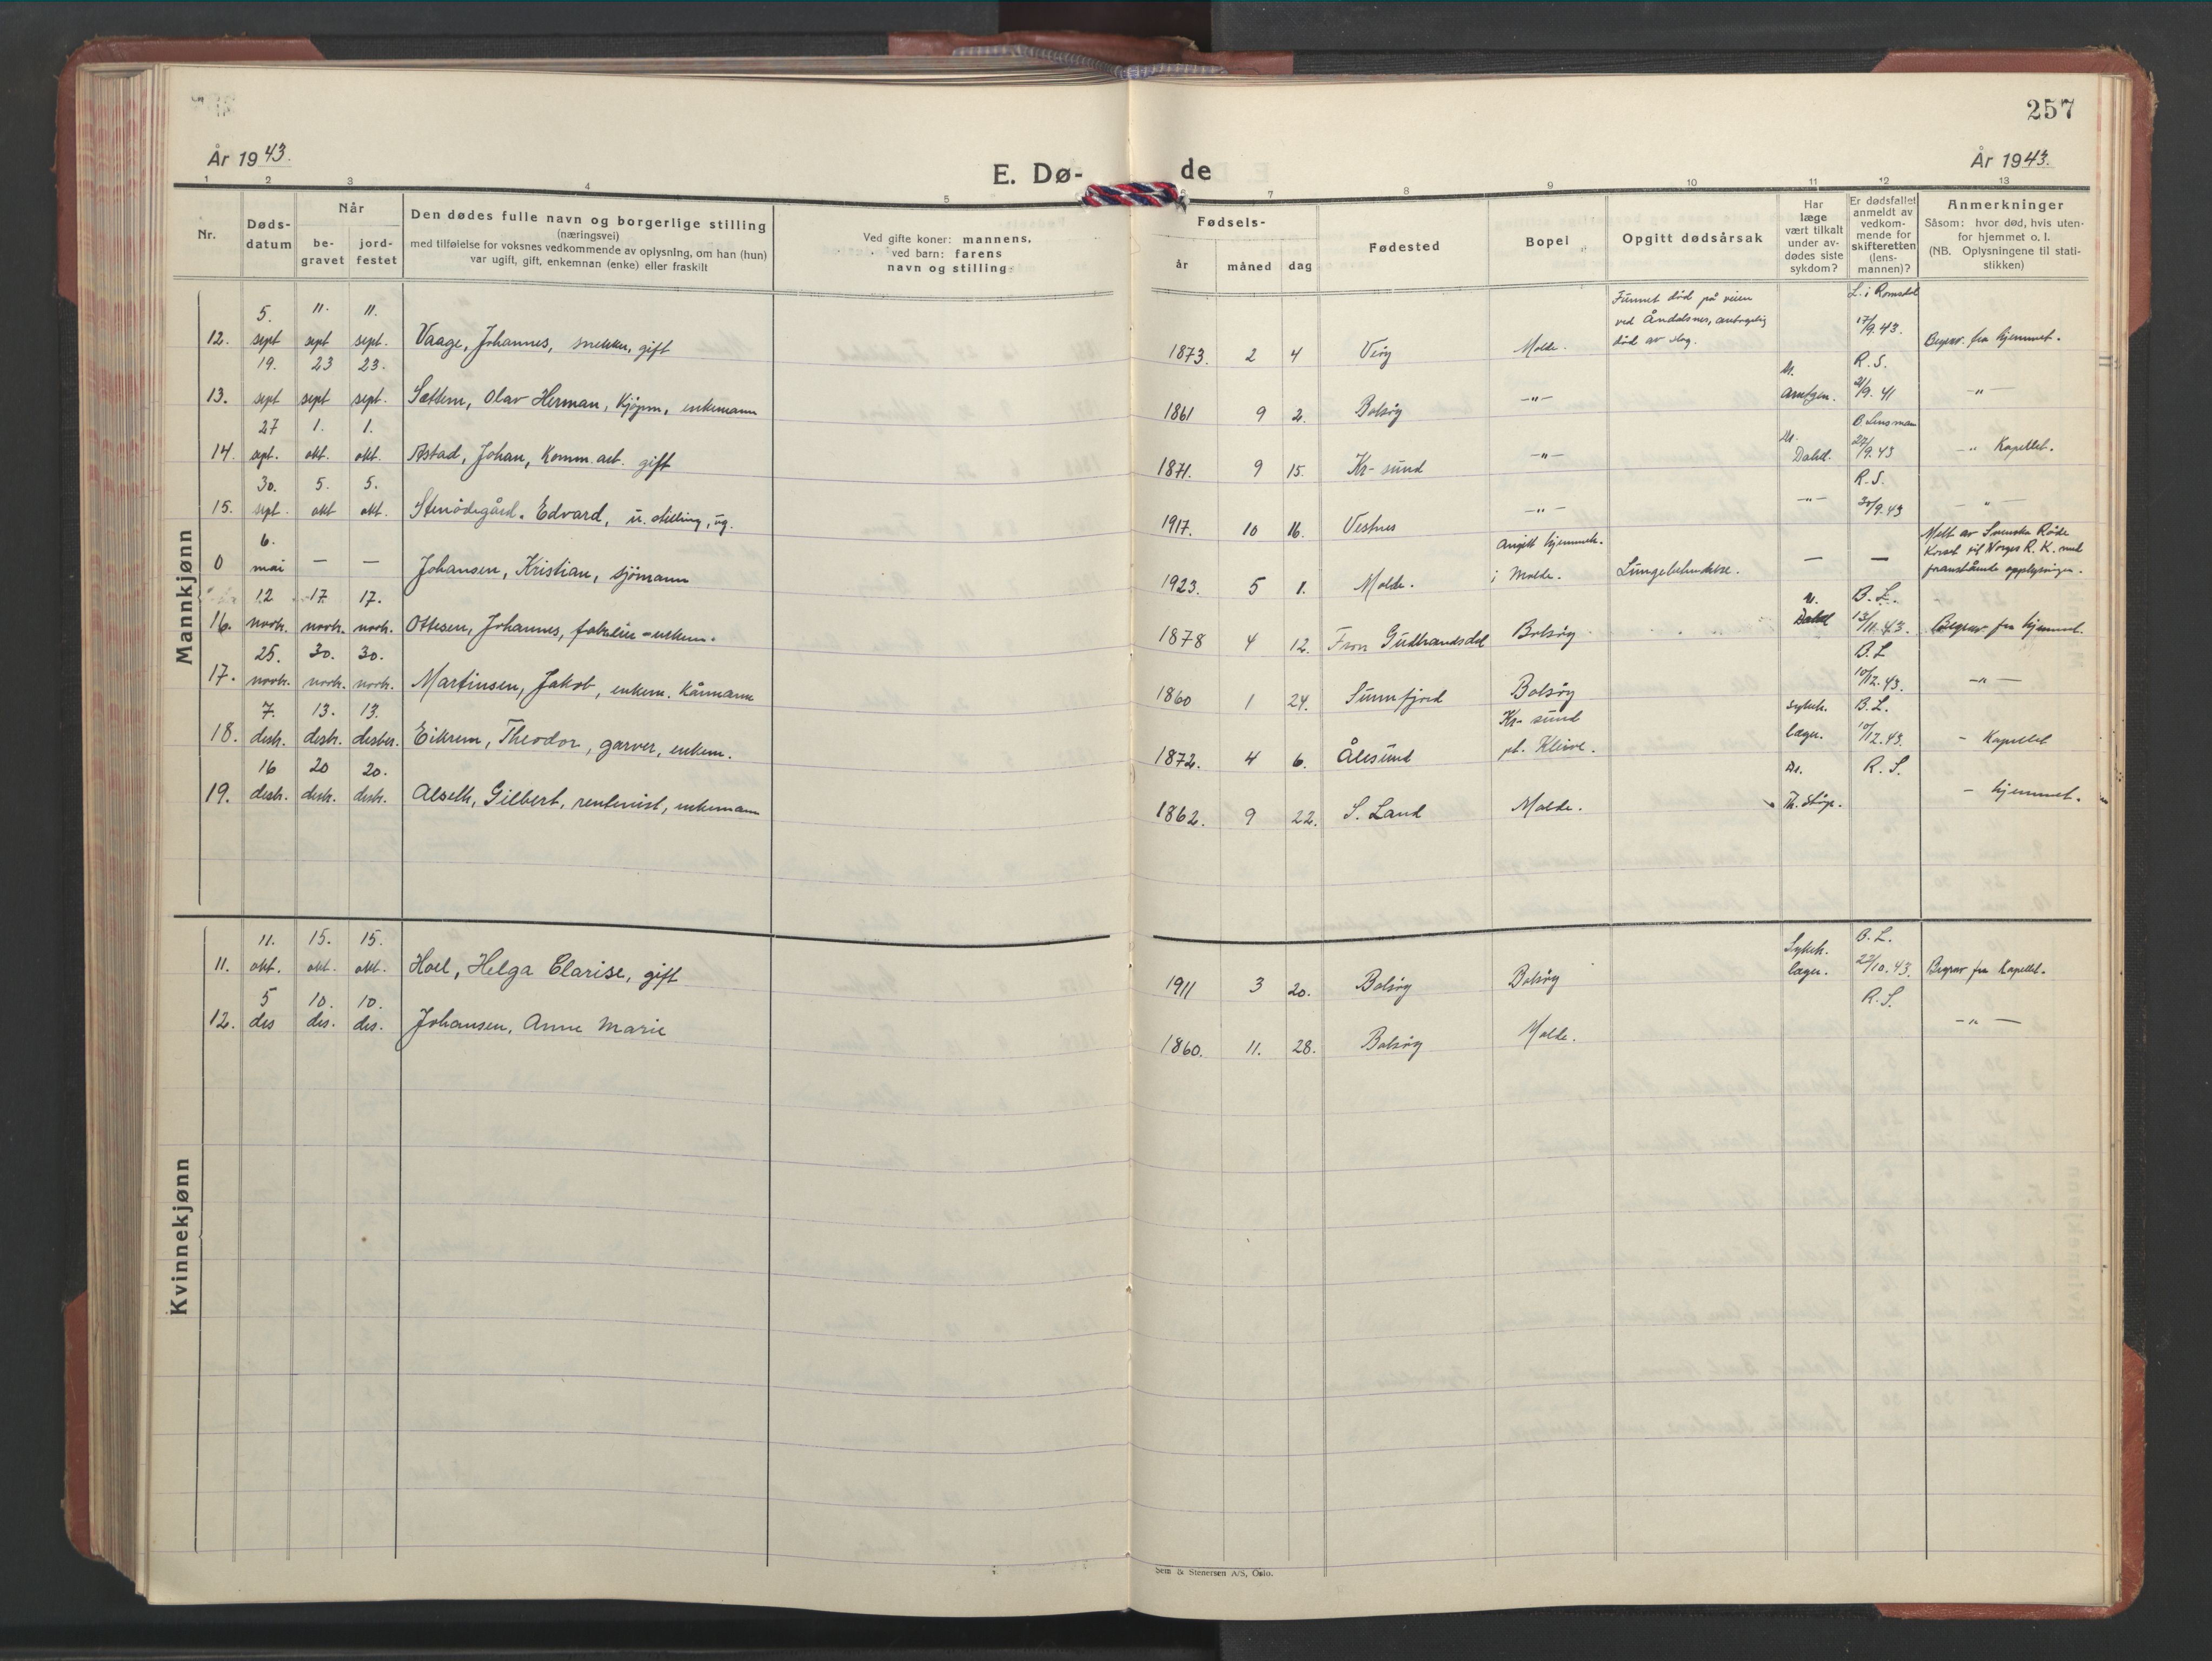 257
År 1943.
År 1943.
E. Dø-de
1 2 3 4 5 6 7 8 9 10 11 12 13
Nr.
Døds-
datum
Når
be-
gravet
jord-
festet
Den dødes fulle navn og borgerlige stilling
(næringsvei)
med tilføielse for voksnes vedkommende av oplysning, om han (hun)
var ugift, gift, enkemnan (enke) eller fraskilt
Ved gifte koner: mannens,
ved barn: farens
navn og stilling
Fødsels-
år måned dag
Fødested
Bopel
Opgitt dødsårsak
Har
læge
vært tilkalt
under av-
dødes siste
sykdom?
Er dødsfallet
anmeldt av
vedkom-
mende for
skifteretten
(lens-
mannen)?
Anmerkninger
Såsom: hvor død, hvis uten-
for hjemmet o. l.
(NB. Oplysningene til stati-
stikken)
Mannkjønn
5. 11. 11. Funnet død på veien L. i Romsdal
ved Åndalsnes, antagelig 17/9.43.
12. sept sept sept. Vaage, Johannes, snekker, gift 1873. 2 4 Veøy Molde. død av slag. Begrav. fra hjemmet.
19. 23 23. Dr. R. S.
13. sept sept sept. Sættem, Olav Herman, kjøpm., enkemann 1861 9 2. Bolsøy -"- 21/9. 41 -"-
27 1. 1. Dr. B. Lensmann
14. sept. okt. okt. Astad, Johan, Komm. arb. gift 1871. 9 15. Kr-sund -"- Dahl. 27/9.43 -"- Kapellet.
30. 5. 5. R. S.
15. sept. okt okt. Stenødegård. Edvard, u. stilling, ug. 1917. 10 16. Vestnes -"- -"- 30/9.43 -"-
6. Angitt hjemmeh. Melt av Svenska Røde
0 mai — — Johansen, Kristian, sjømann 1923. 5 1. Molde. i Molde. Lungebetendelse. — — Korset til Norges R. K. med
foranstående opplysninger.
12 17 17. B. L.
16. novb. novb. novb. Ottesen, Johannes, enkem. 1878 4 12. Fron Gudbrandsdal Bolsøy Dahl 13/11.43. Begrav. fra hjemmet.
25. 30. 30. B. L
17. novb. novb. novb. Martinsen, Jakob, enkem. kårmann 1860 1 24. Sunnfjord Bolsøy 10/12.43. -"-
7. 13. 13. Kr-sund sykeh. B. L.
18. desb. desb. desber. Eikrem, Theodor, garver, enkem. 1872. 4 6. Ålesund pt. Kleive. læger. 10/12.43. - Kapellet
16 20 20. Dr. R. S.
19. desb. desb. desb. Alseth, Gilbert, rentenist, enkemann 1862. 9 22. S. Land Molde. Th. - hjemmet.
Kvinnekjønn
11. 15. 15. Sykeh. B. L.
11. okt. okt. okt. Hoel, Helga Clarise, gift 1911 3 20. Bolsøy Bolsøy læger. 22/10.43. Begrav fra Kapellet.
5 10. 10. R. S.
12. des des. des. Johansen, Anne Marie 1860. 11. 28. Bolsøy Molde. -"-
Sem & Stenersen A/S, Oslo.